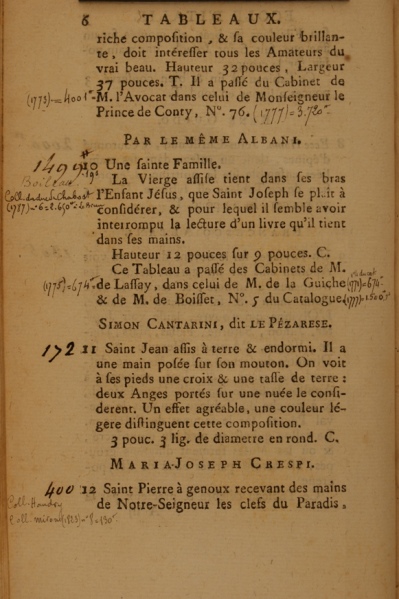 6 TABLEAUX.
riche composition, & sa couleur brillan-
te, doit intéresser tous les Amateurs du
vrai beau. Hauteur 32 pouces, Largeur
37 pouces. T. Il a passé du Cabinet de
(1773)=4001 M. l'Avocat dans celui de Monseigneur le
Prince de Conty, N°. 76. (1777)=3.720
PAR LE MÊME ALBANI.
1499 19s 10 Une sainte Famille.
La Vierge assise tient dans ses bras
l'Enfant Jésus, que Saint Joseph se plaît à
(1787) considérer, & pour lequel il semble avoir
interrompu la lecture d'un livre qu'il tient
dans ses mains.
Hauteur 12 pouces sur 9 pouces. C.
Ce Tableau a passé des Cabinets de M.
(1778)=674 de Lassay, dans celui de M. de la Guiche =670
& de M. de Boisset, N°. 5 du Catalogue. (1777)
SIMON CANTARINI, dit LE PÉZARESE.
172 11 Saint Jean assis à terre & endormi. Il a
une main posée sur son mouton. On voit
à ses pieds une croix & une tasse de terre :
deux Anges portés sur une nuée le consi-
derent. Un effet agréable, une couleur lé-
gere distinguent cette composition.
3 pouc. 3 lig. de diametre en rond. C.
MARIA-JOSEPH CRESPI.
400 12 Saint Pierre à genoux recevant des mains
Coll. de Notre-Seigneur les clefs du Paradis,
Coll.